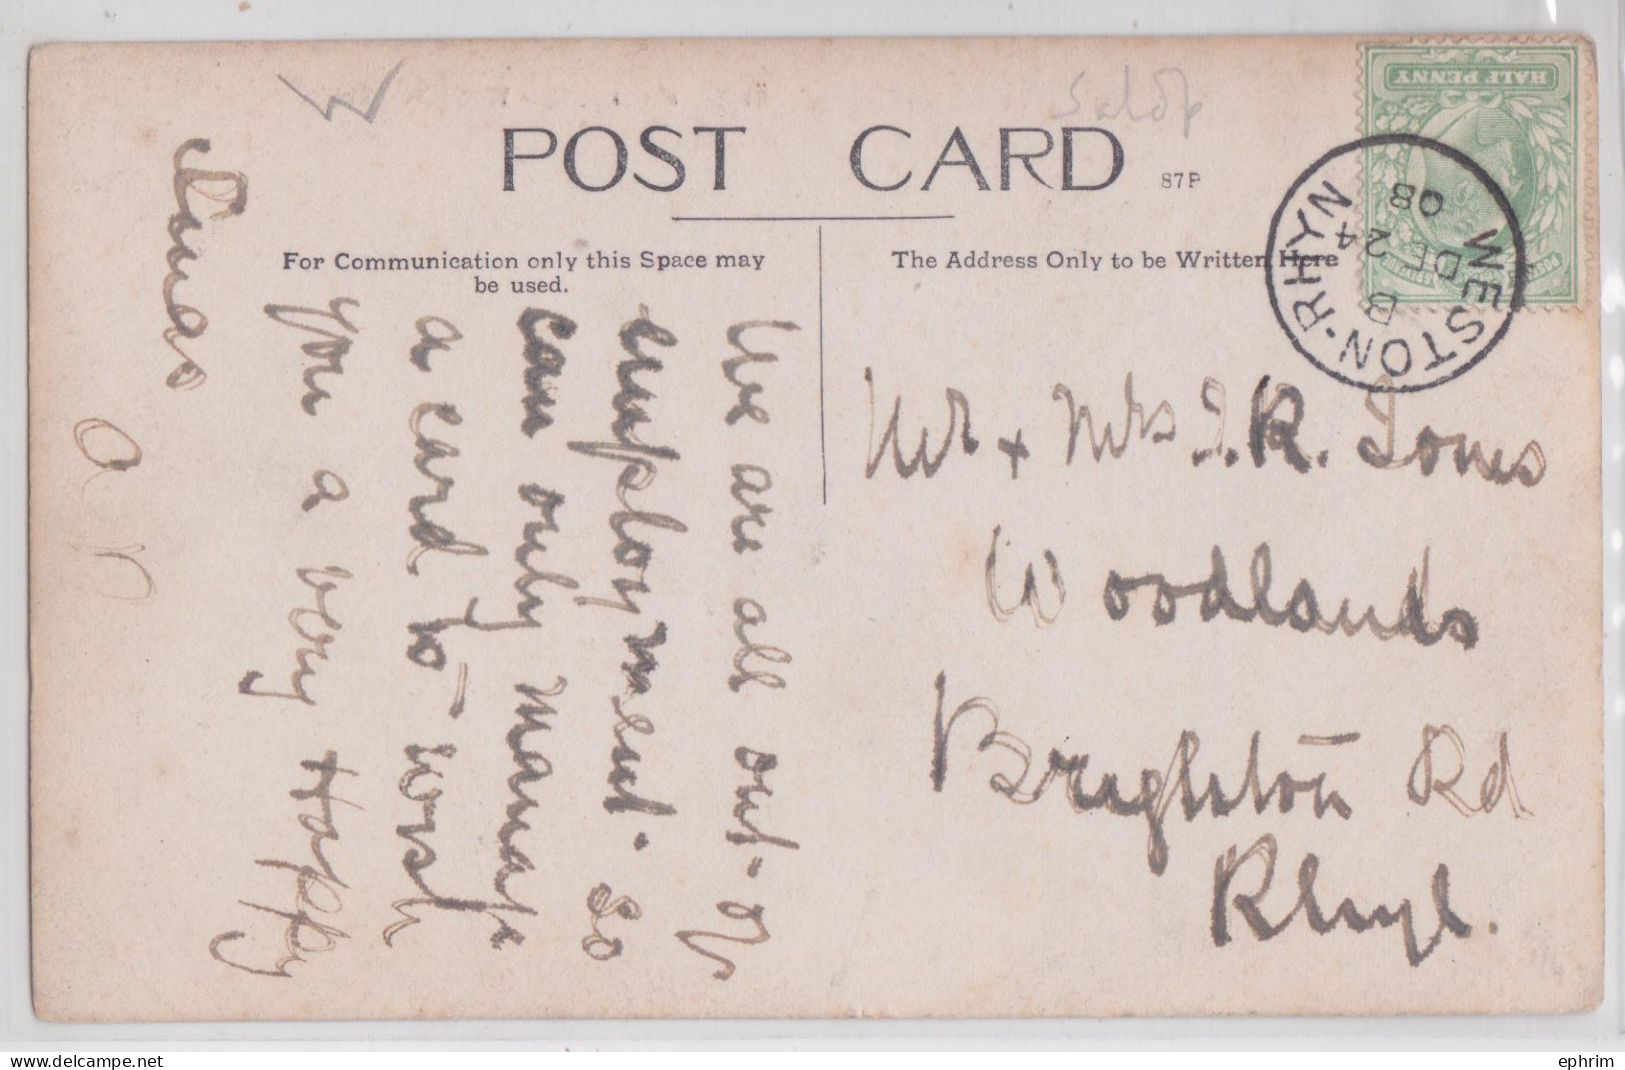 Salop
POST CARD
87P
For Communication only this Space may
be used.
The Address Only to be Written Here
HALF PENNY
WESTON-RHYN
B
DE 24
08
We are all out of
employment so
can only manage
a card to wish
you a very Happy
Xmas
Mr + Mrs J. R. Jones
Woodlands
Brighton Rd
Rhyl.
delcampe.net
ephrim